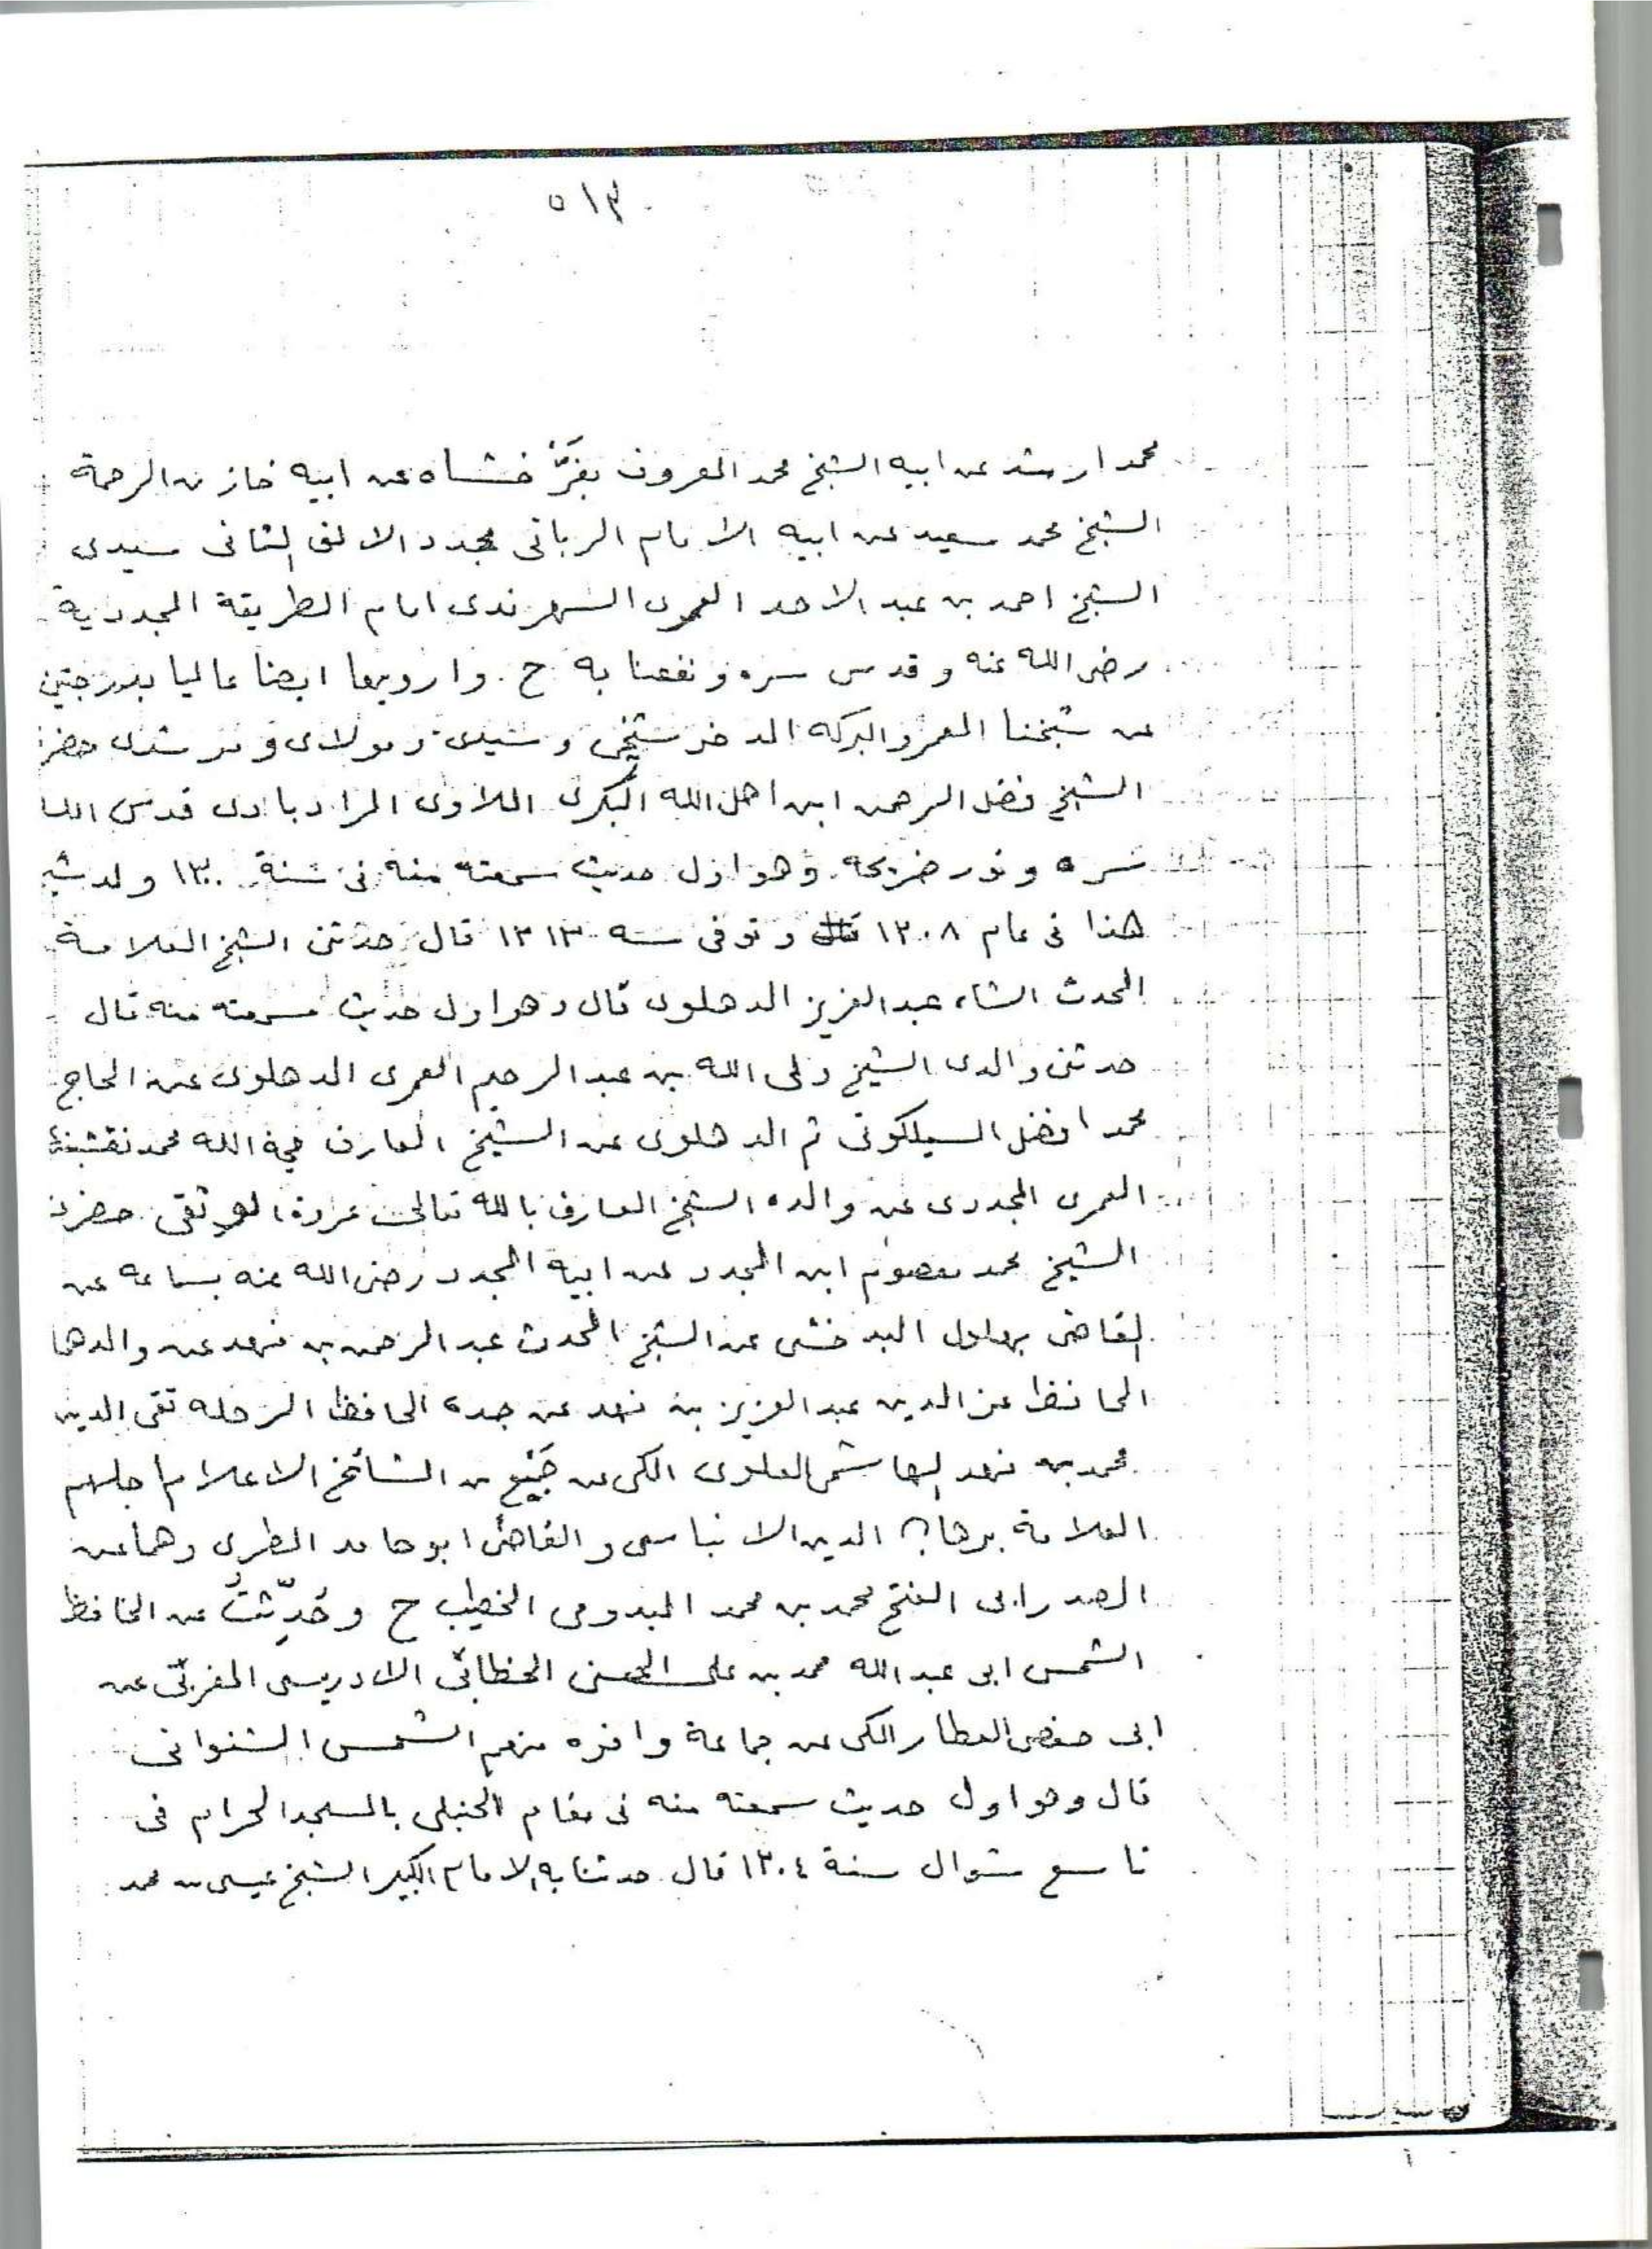 ٥١٣
محمد ارشد عن ابيه الشيخ محمد المعروف بفرّخشاه عن ابيه خازن الرحمة
الشيخ محمد سعيد عن ابيه الامام الربانى مجدد الالف الثانى سيدى
الشيخ احمد بن عبد الاحد العمرى السهرندى امام الطريقة المجددية
رضى الله عنه وقدس سره ونفعنا به ح . وارويها ايضا عاليا بدرجتين
عن شيخنا المعمر والبركه المدخر شيخى وسيدى ومولاى ومرشدى حضرة
الشيخ فضل الرحمن ابن اهل الله البكرى الملاوى المرادبادى قدس الله
سره ونور ضريحه وهو اول حديث سمعته منه فى سنة ١٣٠٠ ولد
هذا فى عام ١٢٠٨ وتوفى سنه ١٣١٣ قال حدثنى الشيخ العلامة
المحدث الشاه عبد العزيز الدهلوى قال وهو اول حديث سمعته منه قال
حدثنى والدى الشيخ ولى الله بن عبد الرحيم العمرى الدهلوى عن الحاج
محمد افضل السيلكوتى ثم الدهلوى عن الشيخ العارف حجة الله محمد نقشبند
العمرى المجددى عن والده الشيخ العارف بالله تعالى عروة الوثقى حضرة
الشيخ محمد معصوم ابن المجدد عن ابيه المجدد رضى الله عنه بسماعه عن
القاضى بهلول البدخشى عن الشيخ المحدث عبد الرحمن بن فهد عن والدهما
الحافظ عز الدين عبد العزيز بن فهد عن جده الحافظ الرحله تقى الدين
محمد بن فهد الهاشمى العلوى المكى عن جمع من المشائخ الاعلام اجلهم
العلامة برهان الدين الابناسى والقاضى ابو حامد المطرى وهما عن
الصدر ابى الفتح محمد بن محمد الميدومى الخطيب ح وحُدِّثتُ عن الحافظ
الشمس ابى عبد الله محمد بن على الحسنى الخطابى الادريسى المغربى عن
ابى حفص العطار المكى عن جماعة وافره منهم الشمس الشنوانى
قال وهو اول حديث سمعته منه فى مقام الحنبلى بالمسجد الحرام فى
تاسع شوال سنة ١٢٠٤ قال حدثنا به الامام الكبير الشيخ عيسى بن محمد